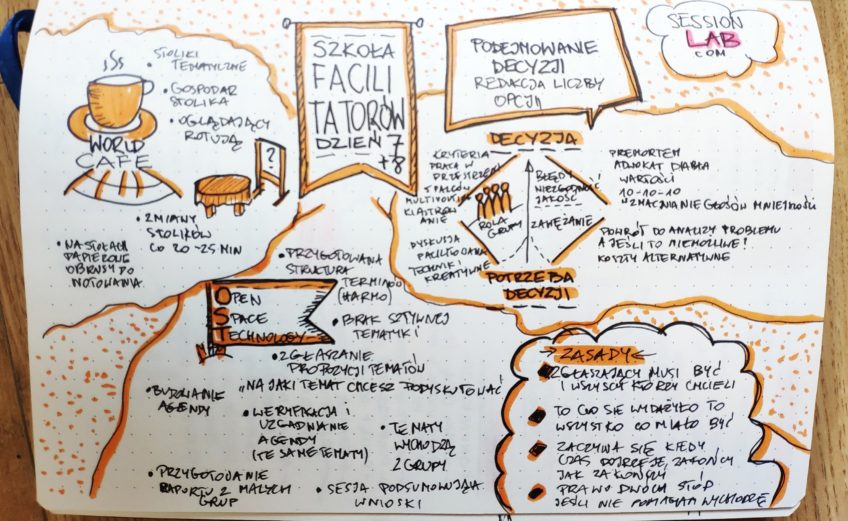 SZKOŁA
FACILI
TATORÓW
DZIEŃ 7
+8
PODEJMOWANIE
DECYZJI
REDUKCJA LICZBY
OPCJI
SESSION
LAB
COM
WORLD
CAFE
• STOLIKI
TEMATYCZNE
• GOSPODARZ
STOLIKA
• OGLĄDAJĄCY
ROTUJĄ
?
• ZMIANY
STOLIKÓW
CO 20-25 MIN
• NA STOŁACH
PAPIEROWE
OBRUSY DO
NOTOWANIA
DECYZJA
KRYTERIA
PRACA W
PRZESTRZENI
5 PALCÓW
MULTIVOTING
KLASTROW
ANIE
DYSKUSJA
FACILITOWANA
TECHNIKI
KREATYWNE
ROLA
GRUPY
BŁĘDY
NIEZGODNOŚĆ
JAKOŚĆ
ZAWĘŻANIE
POTRZEBA
DECYZJI
PREMORTEM
ADWOKAT DIABŁA
WARTOŚCI
10-10-10
WZMACNIANIE GŁOSÓW MNIEJSZOŚCI
POWRÓT DO ANALIZY PROBLEMU
A JEŚLI TO NIEMOŻLIWE!
KOSZTY ALTERNATYWNE
OPEN
SPACE
TECHNOLOGY
• PRZYGOTOWANA
STRUKTURA
TERMINÓW
(HARMO)
• BRAK SZTYWNEJ
TEMATYKI
• ZGŁASZANIE
PROPOZYCJI TEMATÓW
„NA JAKI TEMAT CHCESZ PODYSKUTOWAĆ"
• BUDOWANIE
AGENDY
• WERYFIKACJA I
UZGADNIANIE
AGENDY
(TE SAME TEMATY)
• TEMATY
WYCHODZĄ
Z GRUPY
• PRZYGOTOWANIE
RAPORTU Z MAŁYCH
GRUP
• SESJA PODSUMOWUJĄCA
WNIOSKI
→ ZASADY ←
ZGŁASZAJĄCY MUSI BYĆ
I WSZYSCY KTÓRZY CHCIELI
TO CO SIĘ WYDAŻYŁO TO
WSZYSTKO CO MIAŁO BYĆ
ZACZYNA SIĘ KIEDY
CZAS DOJRZEJE, ZAKOŃCZY
JAK ZAKOŃCZY
PRAWO DWÓCH STÓP
JEŚLI NIE POMAGAM WYCHODZĘ